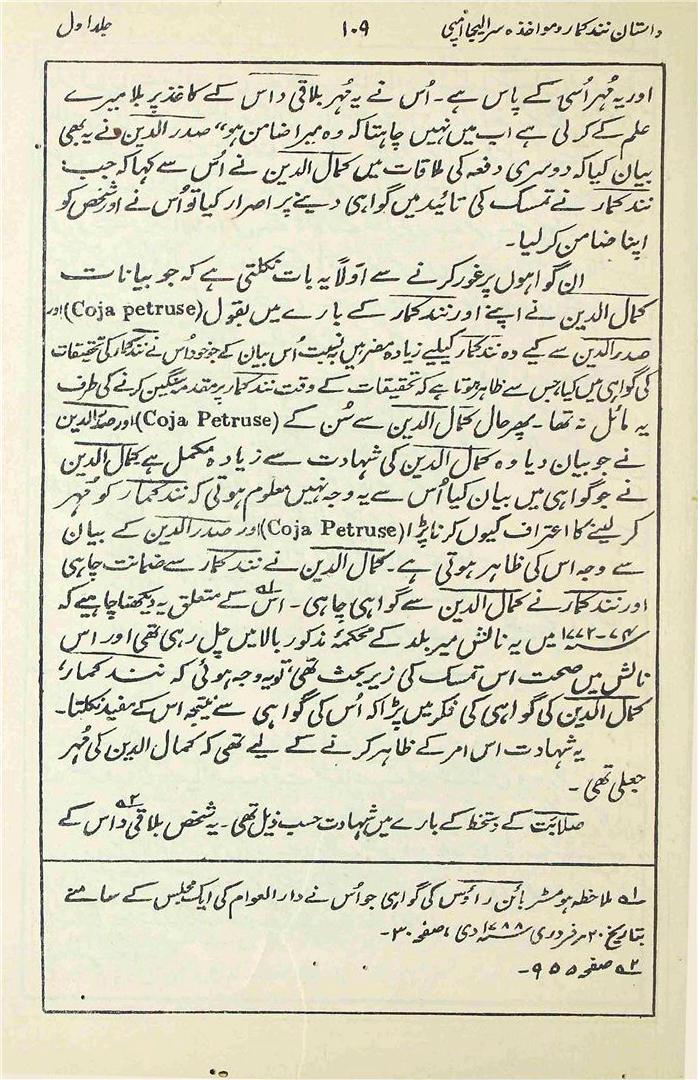 داستان نند کمار و مواخذہ سر الیجا امپی ۱۰۹ جلد اول
اور یہ مُہر اُسی کے پاس ہے۔ اُس نے یہ مُہر بلاقی داس کے کاغذ پر بلا میرے
علم کے کر لی ہے اب میں نہیں چاہتا کہ وہ میرا ضامن ہو" صدر الدین نے یہ بھی
بیان کیا کہ دوسری دفعہ کی ملاقات میں کمال الدین نے اُس سے کہا کہ جب
نند کمار نے تمسک کی تائید میں گواہی دینے پر اصرار کیا تو اُس نے اور شخص کو
اپنا ضامن کر لیا۔
ان گواہوں پر غور کرنے سے اوّلاً یہ بات نکلتی ہے کہ جو بیانات
کمال الدین نے اپنے اور نند کمار کے بارے میں بقول (Coja petruse) اور
صدر الدین سے کیے وہ نند کمار کیلیے زیادہ مضر ہیں بہ نسبت اُس بیان کے جو خود اُس نے نند کمار کی تحقیقات
کی گواہی میں کیا، جس سے ظاہر ہوتا ہے کہ تحقیقات کے وقت نند کمار پر مقدمہ سنگین کرنے کی طرف
یہ مائل نہ تھا۔ بہرحال کمال الدین سے سُن کے (Coja Petruse) اور صدر الدین
نے جو بیان دیا وہ کمال الدین کی شہادت سے زیادہ مکمل ہے کمال الدین
نے جو گواہی میں بیان کیا اُس سے یہ وجہ نہیں معلوم ہوتی کہ نند کمار کو مُہر
کر لینے کا اعتراف کیوں کرنا پڑا (Coja Petruse) اور صدر الدین کے بیان
سے وجہ اس کی ظاہر ہوتی ہے۔ کمال الدین نے نند کمار سے ضمانت چاہی
اور نند کمار نے کمال الدین سے گواہی چاہی۔ اس؎۱ کے متعلق یہ دیکھنا چاہیے کہ
۷۴-۱۷۷۲؁ میں یہ نالش میر بلد کے محکمۂ مذکور بالا میں چل رہی تھی اور اس
نالش میں صحت اس تمسک کی زیر بحث تھی، تو یہ وجہ ہوئی کہ نند کمار،
کمال الدین کی گواہی کی فکر میں پڑا کہ اُس کی گواہی سے نتیجہ اس کے مفید نکلتا۔
یہ شہادت اس امر کے ظاہر کرنے کے لیے تھی کہ کمال الدین کی مُہر
جعلی تھی۔
صلابَت کے دستخط کے بارے میں شہادت حسب ذیل تھی۔ یہ شخص بلاقی؎۲ داس کے
؎۱ ملاحظہ ہو مسٹر بائن راؤس کی گواہی جو اُس نے دار العوام کی ایک مجلس کے سامنے
بتاریخ ۲۰ر فروری ۱۷۸۸؁دی، صفحہ ۳۰۔
؎۲ صفحہ ۹۵۵۔